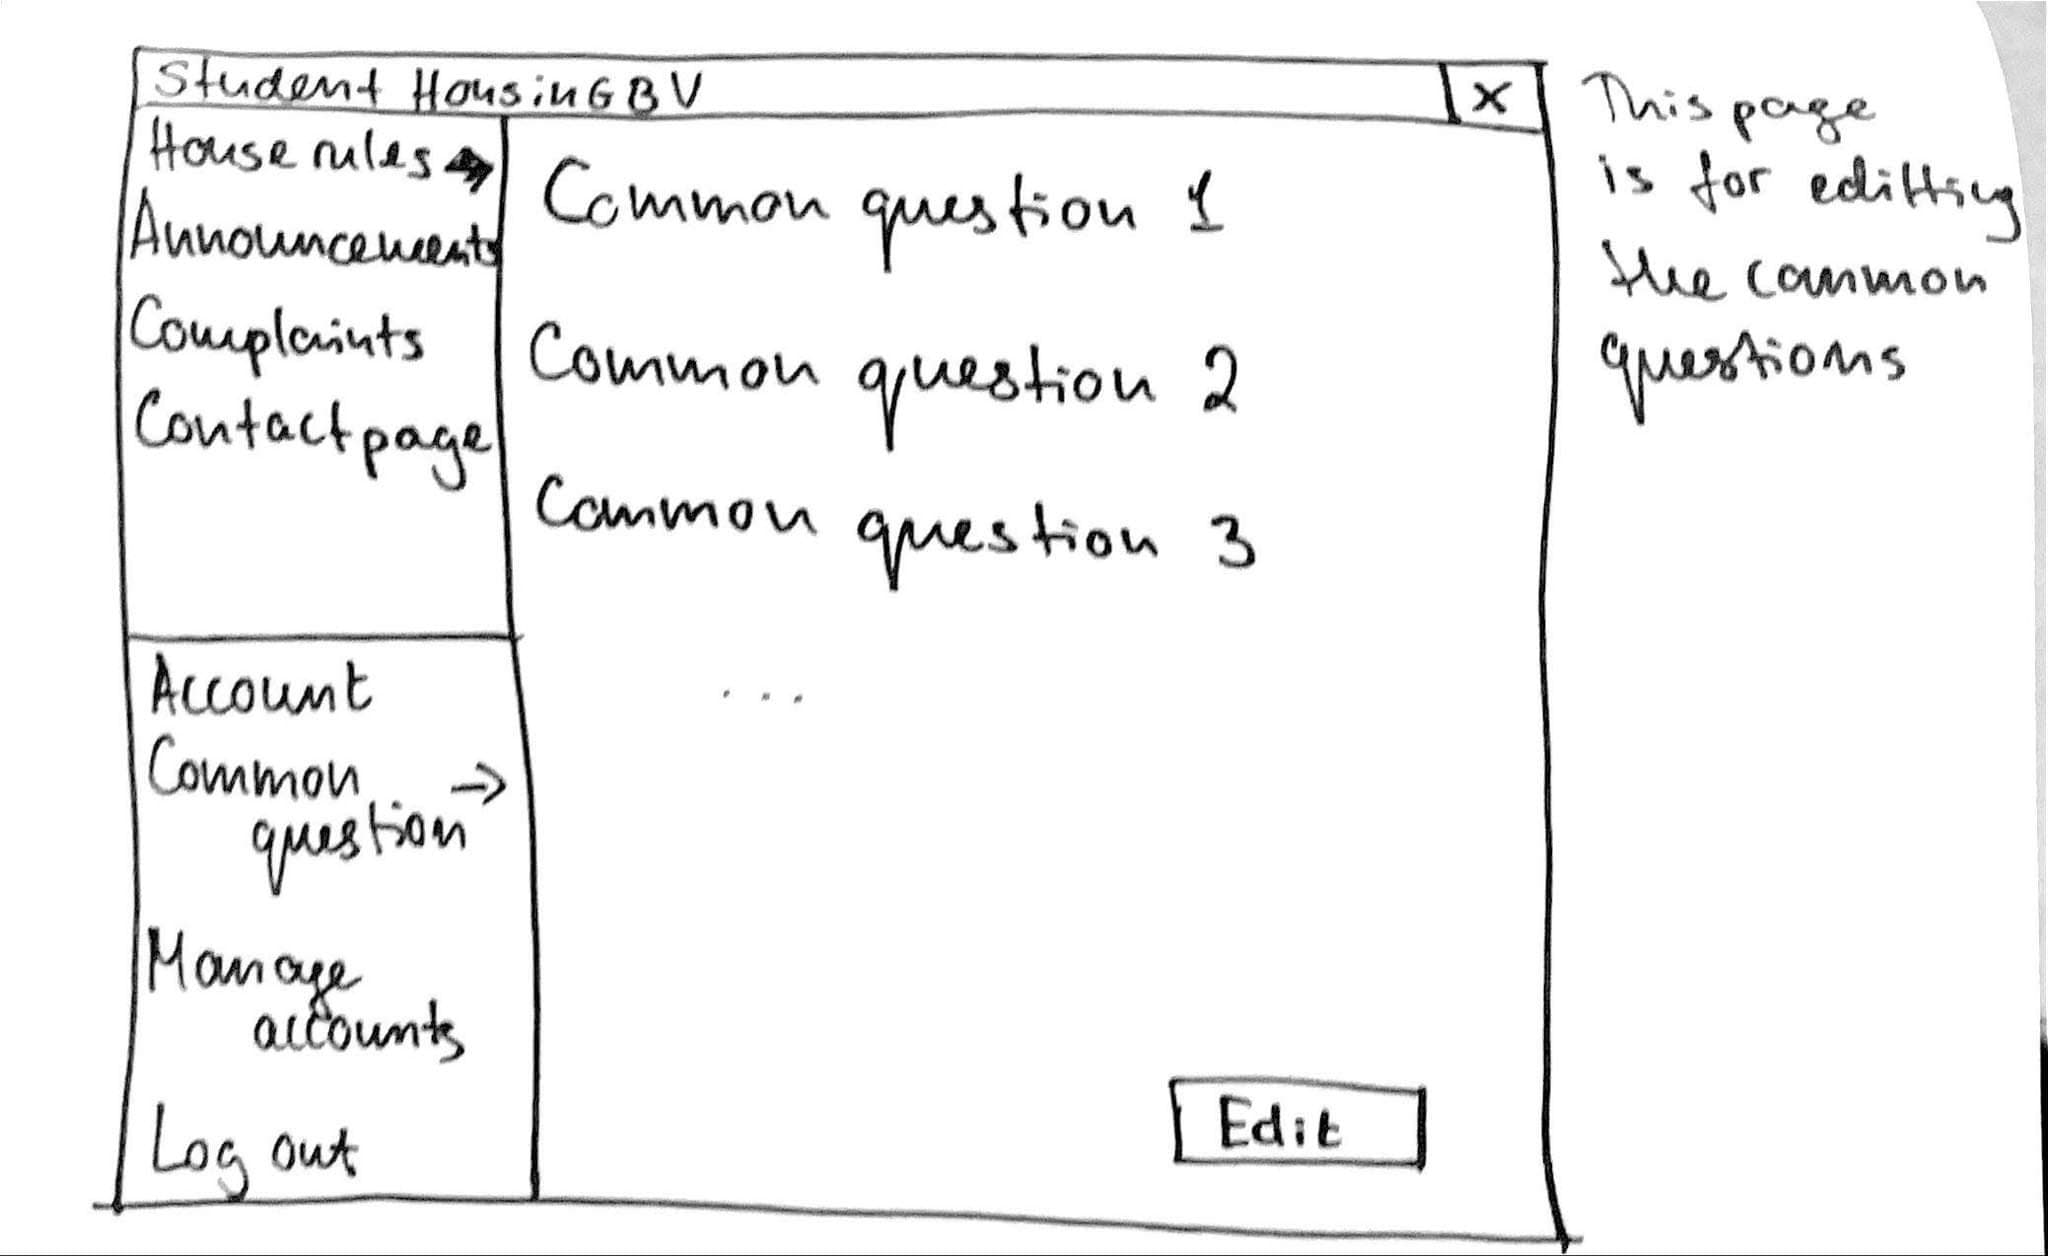 Student HousinG BV
X
House rules →
Announcements
Complaints
Contact page
Account
Common →
question
Manage
accounts
Log out
Common question 1
Common question 2
Common question 3
...
Edit
This page
is for editting
the common
questions